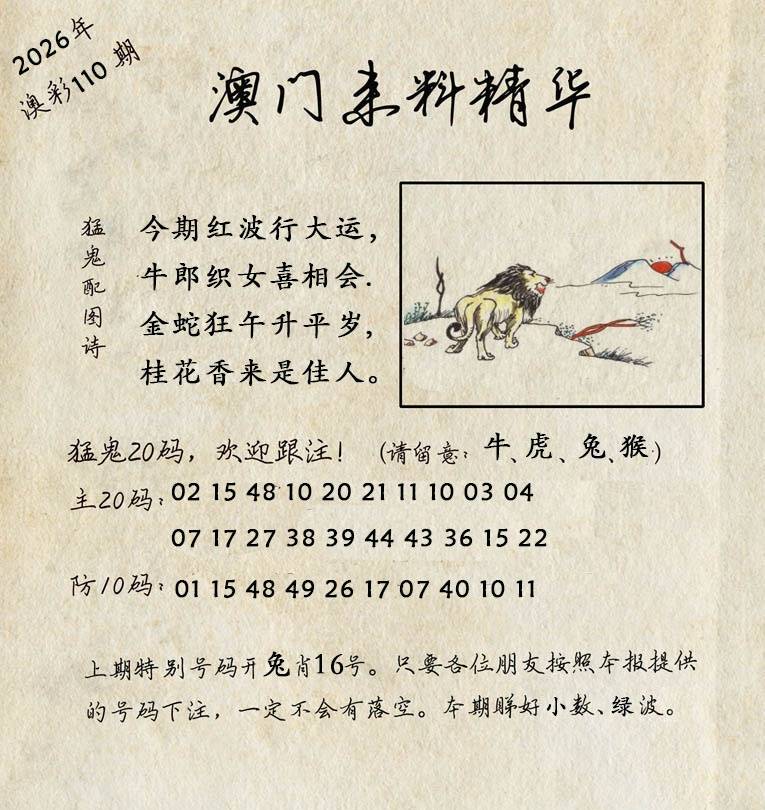 2026年
澳彩110期
澳门来料精华
猛鬼配图诗
今期红波行大运，
牛郎织女喜相会.
金蛇狂午升平岁，
桂花香来是佳人。
猛鬼20码，欢迎跟注！（请留意：牛、虎、兔、猴）
主20码：02 15 48 10 20 21 11 10 03 04
07 17 27 38 39 44 43 36 15 22
防10码：01 15 48 49 26 17 07 40 10 11
上期特别号码开兔肖16号。只要各位朋友按照本报提供
的号码下注，一定不会有落空。本期睇好小数、绿波。